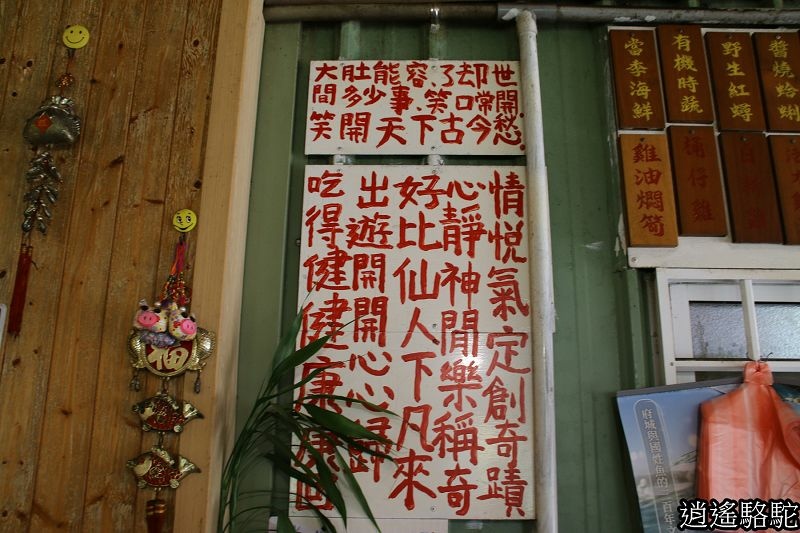 大肚能容、了却世
間多少事、笑口常開、
笑開天下古今愁。
情悅氣定創奇蹟
心靜神閒樂稱奇
好比仙人下凡來
出遊開開心心歸
吃得健健康康回
當季海鮮
有機時蔬
野生紅蟳
醬燒蛤蜊
雞油燜筍
桶仔雞
福
府城與國姓魚的
百年
逍遙駱駝